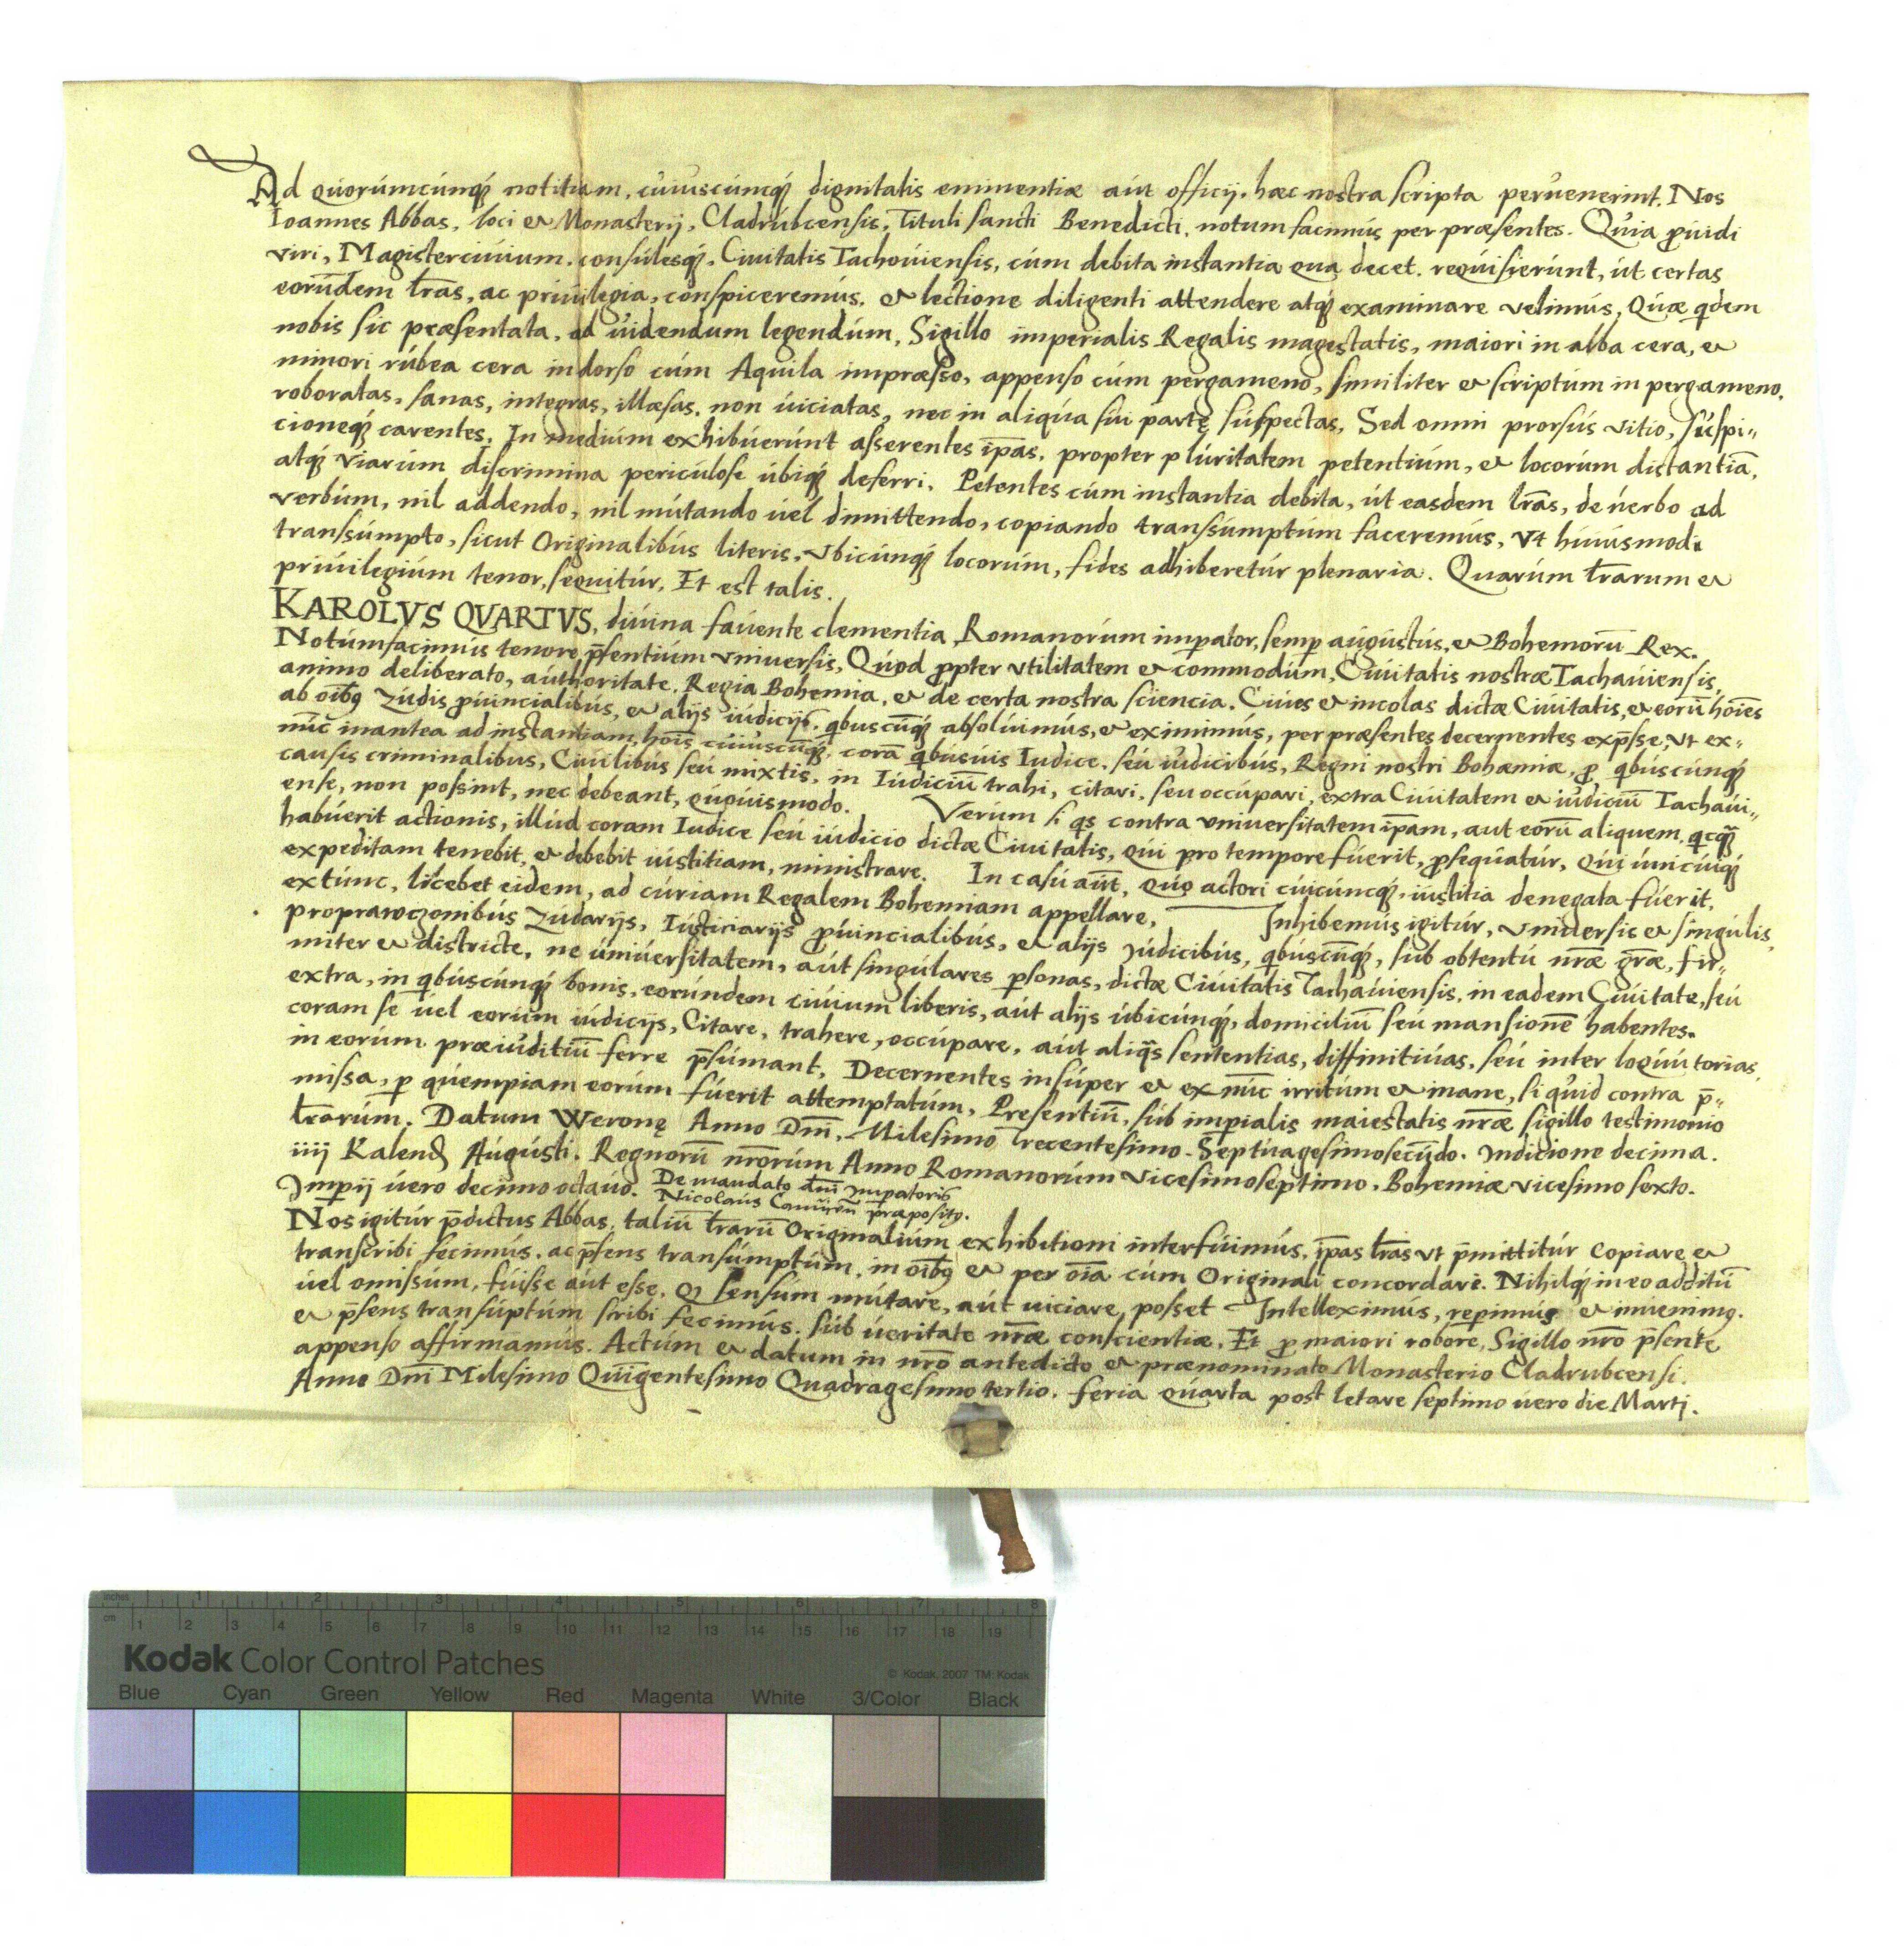 Ad quorúmcúnq́ notitiam, cúiuscúmq́ dignitatis eminentiæ aút officij. hæc nostra scripta perúenerint. Nos
Ioannes Abbas, loci et Monasterij, Cladrúbcensis, Tituli sancti Benedicti, notum facimús per præsentes. Qúia p̱uidi
viri, Magisterciúium, consúlesq́, Ciúitatis Tachoúiensis, cúm debita instantia qua decet. reqúisierúnt, út certas
eorúndem lr̃as, ac priúilegia, conspiceremús, et lectione diligenti attendere atq́ examinare velimús, Qúæ qdem
nobis sic præsentata, ad úidendum legendúm, Sigillo imperialis Regalis magestatis, maiori in alba cera, et
minori rúbea cera indorso cúm Aquila impræsso, appenso cúm pergameno, similiter et scriptúm in pergameno,
roboratas, sanas, integras, illæsas, non úiciatas, nec in aliqúa súi partę súspectas, Sed omni prorsús vitio, súspi„
cioneq́ carentes, In mediúm exhibúerúnt asserentes ip̃as, propter plúritatem petentiúm, et locorúm distantiã,
atq́ viarúm discrimina pericúlose úbiq́ deferri. Petentes cúm instantia debita, út easdem lr̃as, de úerbo ad
verbúm, nil addendo, nil mútando úel dimittendo, copiando transsúmptúm faceremús, Vt húiúsmodi
transsúmpto, sicut Originalibús literis, vbicúnq́ locorúm, fides adhiberetúr plenaria. Quarúm lr̃arum et
priúilegiúm tenor, seqúitúr, Et est talis.
KAROLVS QVARTVS, diúina faúente clementia, Romanorúm imp̱ator, semp̱ aúgústús, et Bohemorũ Rex.
Notúmfacimús tenore p̃sentiúm vniuersis, Qúod p̱pter vtilitatem et commodúm, Ciúitatis nostræ Tachaúiensis,
animo deliberato, aúthoritate, Regia Bohemia, et de certa nostra sciencia, Ciúes et incolas dictæ Ciúitatis, et eorũ hoĩes
ab oĩbꝰ Zúdis p̱úincialibús, et alijs iúdicijs, qbuscũq́ absolúimús, et eximimús, per præsentes decernentes exp̃sse, vt ex„
nũc inantea ad instantiam, hoĩs cúiúscũq́, corã qbúsúis Iudice, séu iúdicibús, Regni nostri Bohæmiæ, p̱ qbúscúnq́
causis criminalibus, Ciúilibus seú mixtis, in Iúdiciũ trahi, citari, seu occúpari, extra Ciúitatem et iúdiciũ Tachaúi„
ense, non possint, nec debeant, qúoúismodo. Verúm si qs contra vniuersitatem ip̃am, aut eorũ aliquem, qcq̃
habúerit actionis, illúd coram Iudice seú iúdicio dictæ Ciúitatis, qúi pro tempore fúerit, p̱seqúatúr, qúi únicúiq́
expeditam tenebit, et debebit iústitiam, ministrare. In casú aũt, qúo actori cúicúnq́, iústitia denegata fúerit,
extúnc, licebet eidem, ad cúriam Regalem Bohemiam appellare, Inhibemús igitúr, vniúersis et singúlis,
proprawczonibús Zúdarijs, Iústiciarijs p̱úincialibús, et alijs júdicibús, qbúscũq́, súb obtentú nr̃æ gr̃æ, fir„
miter et districte, ne úniúersitatem, aút singúlares p̱sonas, dictæ Ciúitatis Tachaúiensis, in eadem Ciúitate, seú
extra, in qbúscúnq́ bonis, eorúndem ciúium liberis, aút alijs úbicúnq́, domiciliũ seú mansionẽ habentes.
coram se úel eorúm iúdicijs, Citare, trahere, occúpare, aút aliq̃s sententias, diffinitiúas, seú inter loqúútorias,
in eorúm præiúditiũ ferre p̃súmant, Decernentes insúper et ex nũc irritúm et inane, si qúid contra p̃„
missa, p̱ qúempiam eorúm fúerit attemptatúm, Presentiũ, súb imp̱ialis maiestatis nr̃æ sigillo testimonio
lr̃arúm. Datum Weronę Anno Dñi, Milesimo Trecentesimo Septúagesimosecũdo. Indicione decima.
iiij Kalend Aúgústi. Regnorũ nr̃orúm Anno Romanorúm vicesimoseptimo. Bohemiæ vicesimo sexto.
Jmp̱ij úero decimo octaúo. De mandato dñi Jmp̱atoris
Nicolaús Camirẽn̄ præpositꝰ.
Nos igitúr p̃dictus Abbas, taliũ lr̃arũ Originaliúm exhibitioni interfúimús, ip̃as lr̃as vt p̃mittitúr Copiare et
transcribi fecimús, ac p̃sens transúmptúm, in oĩbꝰ et per oĩa cúm Originali concordare. Nihilq́ in eo additũ
úel omissúm, fúisse aút esse, q sensúm mútare, aút uiciare, posset Intelleximús, reperimꝰ et inúenimꝰ.
et p̃sens transúptúm scribi fecimús. súb úeritate nr̃æ conscientiæ. Et p̱ maiori robore, Sigillo nr̃o p̃sente
appenso affirmamús. Actúm et datum in nr̃o antedicto et prænominato Monasterio Cladrubcensi.
Anno Dñi Milesimo Qũigentesimo Quadragesimo tertio. feria qúarta post letare septimo úero die Martj.
Kodak Color Control Patches
© Kodak, 2007 TM: Kodak
inches 1 2 3 4 5 6 7 8
cm 1 2 3 4 5 6 7 8 9 10 11 12 13 14 15 16 17 18 19
Blue Cyan Green Yellow Red Magenta White 3/Color Black